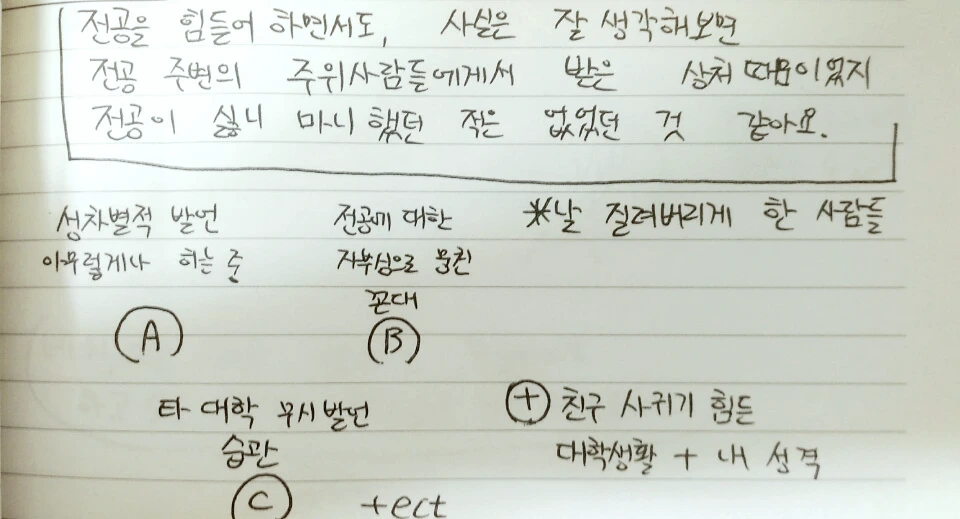 전공을 힘들어 하면서도, 사실은 잘 생각해보면
전공 주변의 주위사람들에게서 받은 상처 때문이었지
전공이 싫니 마니 했던 적은 없었던 것 같아요.
*날 질려버리게 한 사람들
성차별적 발언
아무렇게나 하는 준
A
전공에 대한
자부심으로 뭉친
꼰대
B
타 대학 무시발언
습관
C
+ect
+ 친구 사귀기 힘든
대학생활 + 내 성격